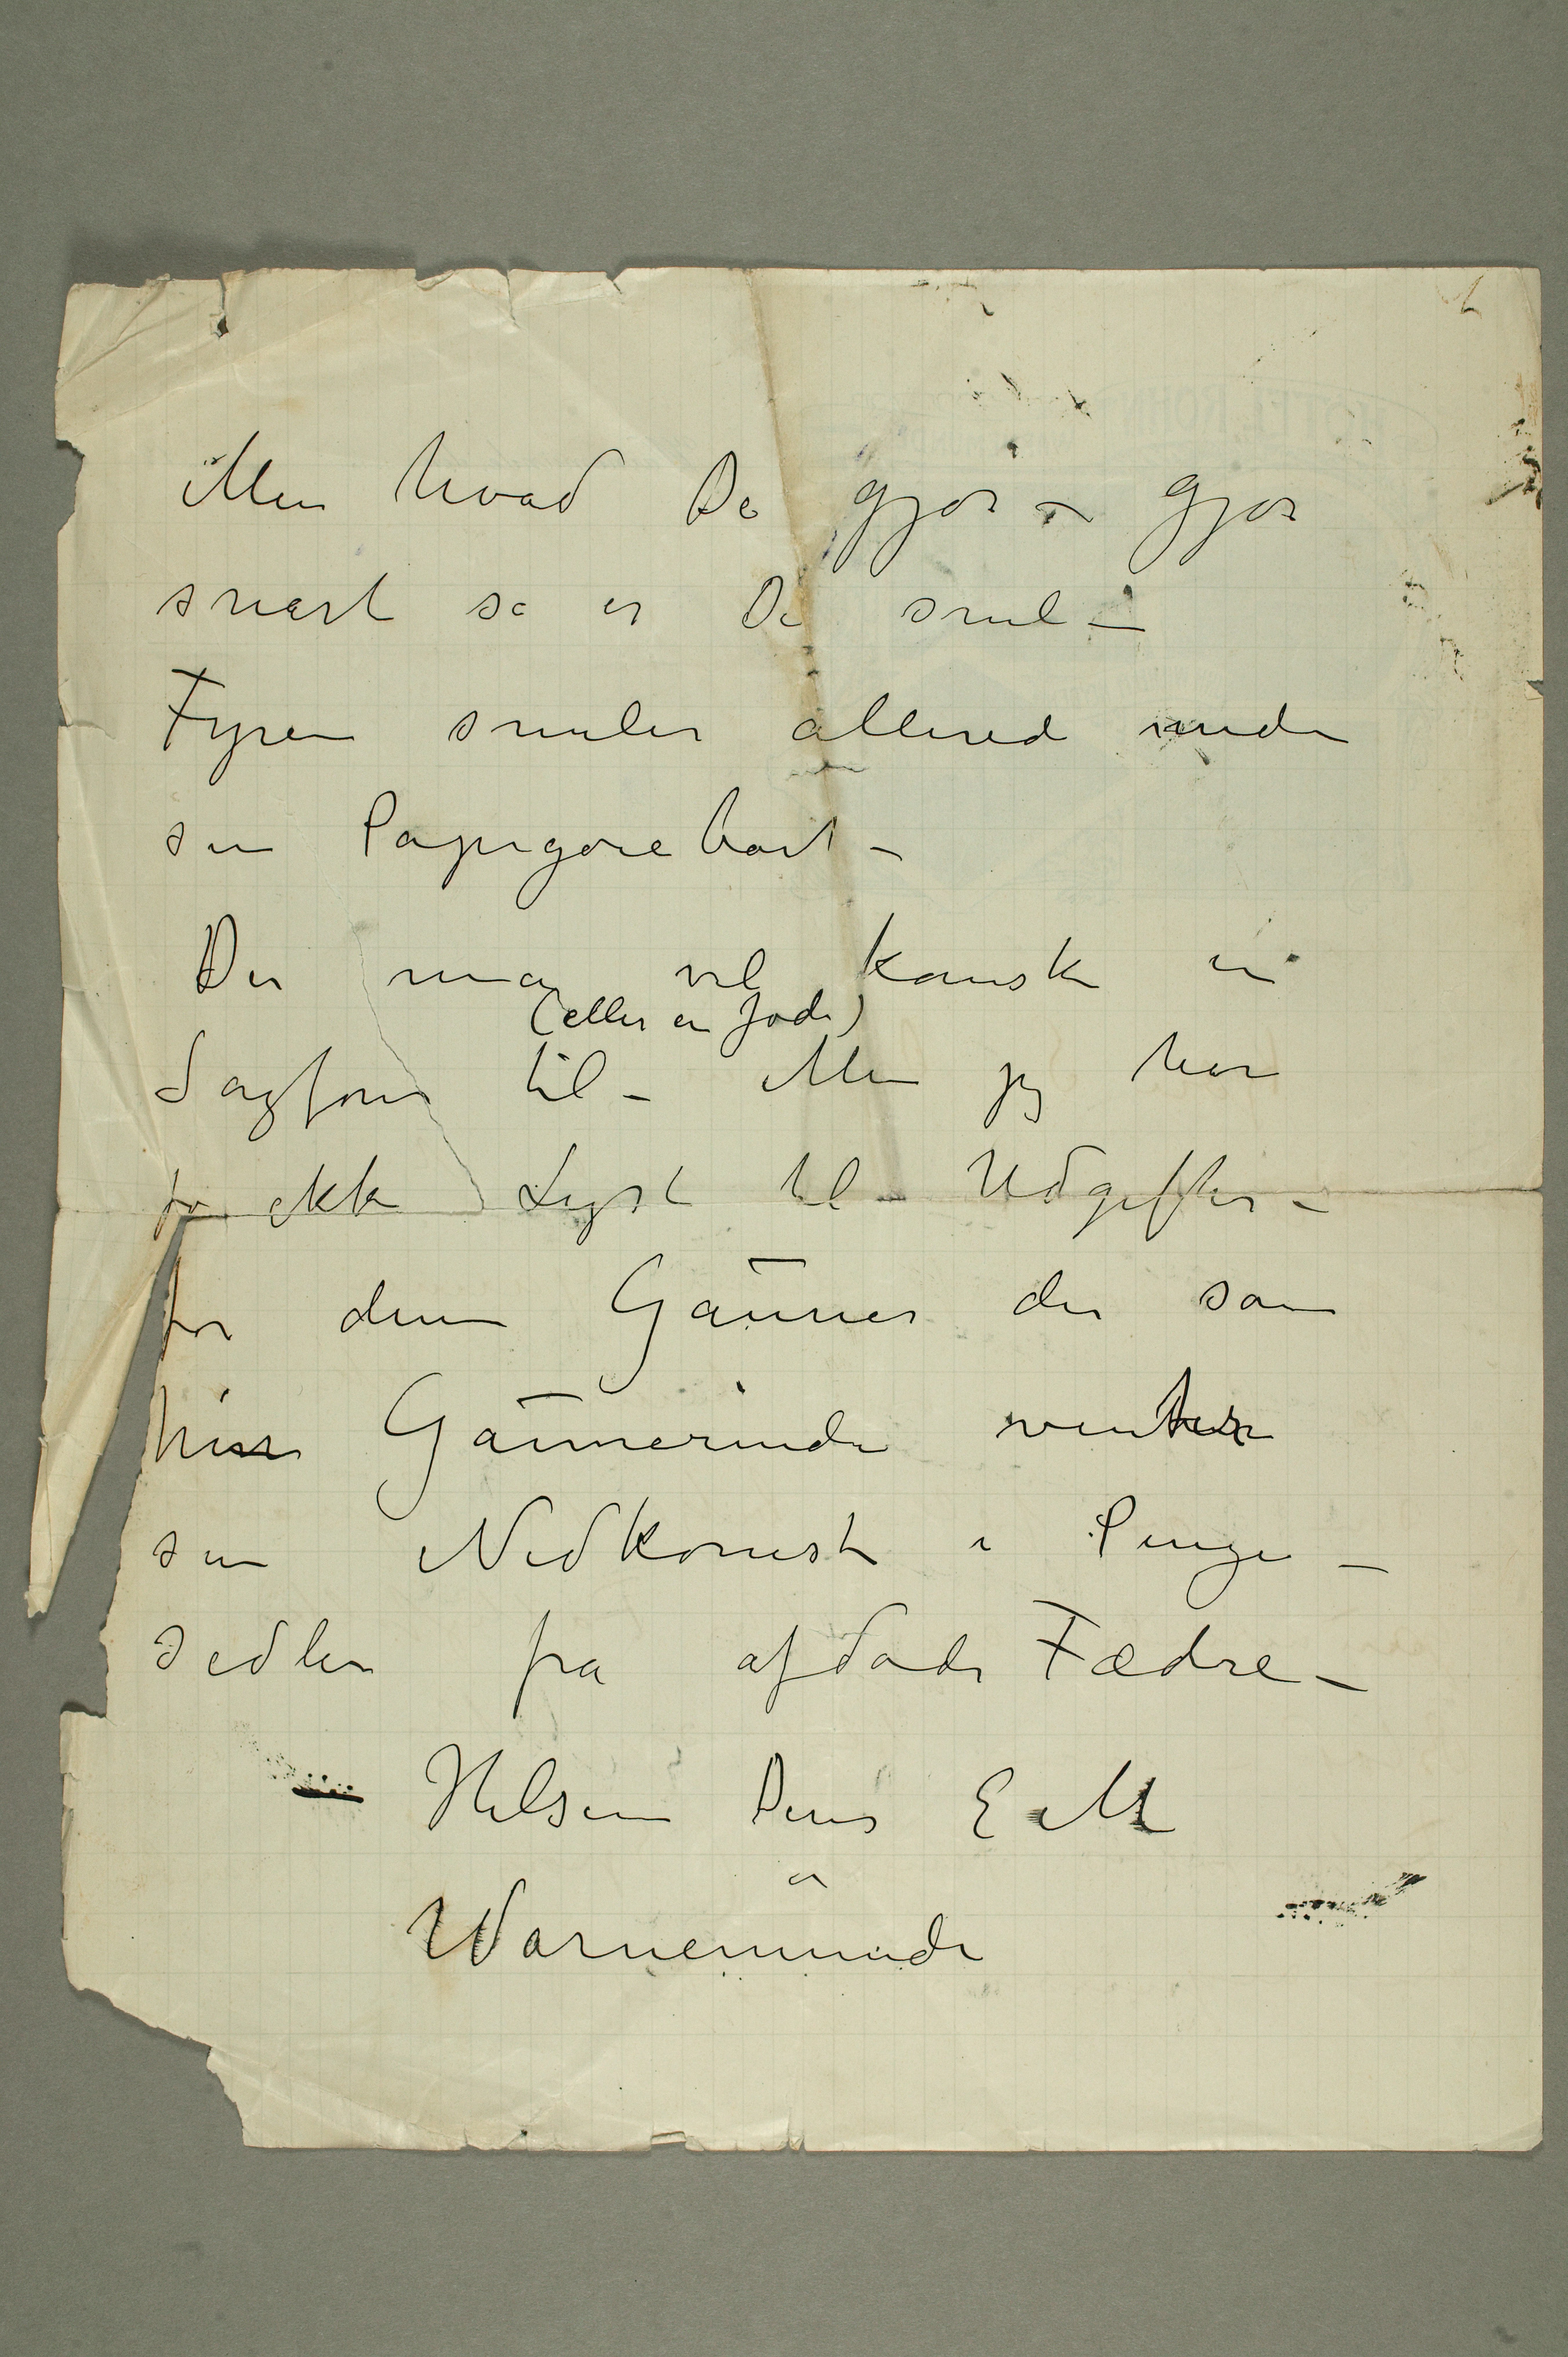 Men hvad De gjør – gjør
snart så er De snil –
Fyren smiler allerede under
sin Papegøiebart –
Der må vel kanske en
(eller en Jøde)
Sagfører til – Men jeg har
jo ikke Lyst til Udgifter –
for denne Gauner der som
hin Gaunerinde venter
sin Nedkomst i Penge –
sedler fra afdøde Fædre –
Hilsen Deres E M
Warnemünde